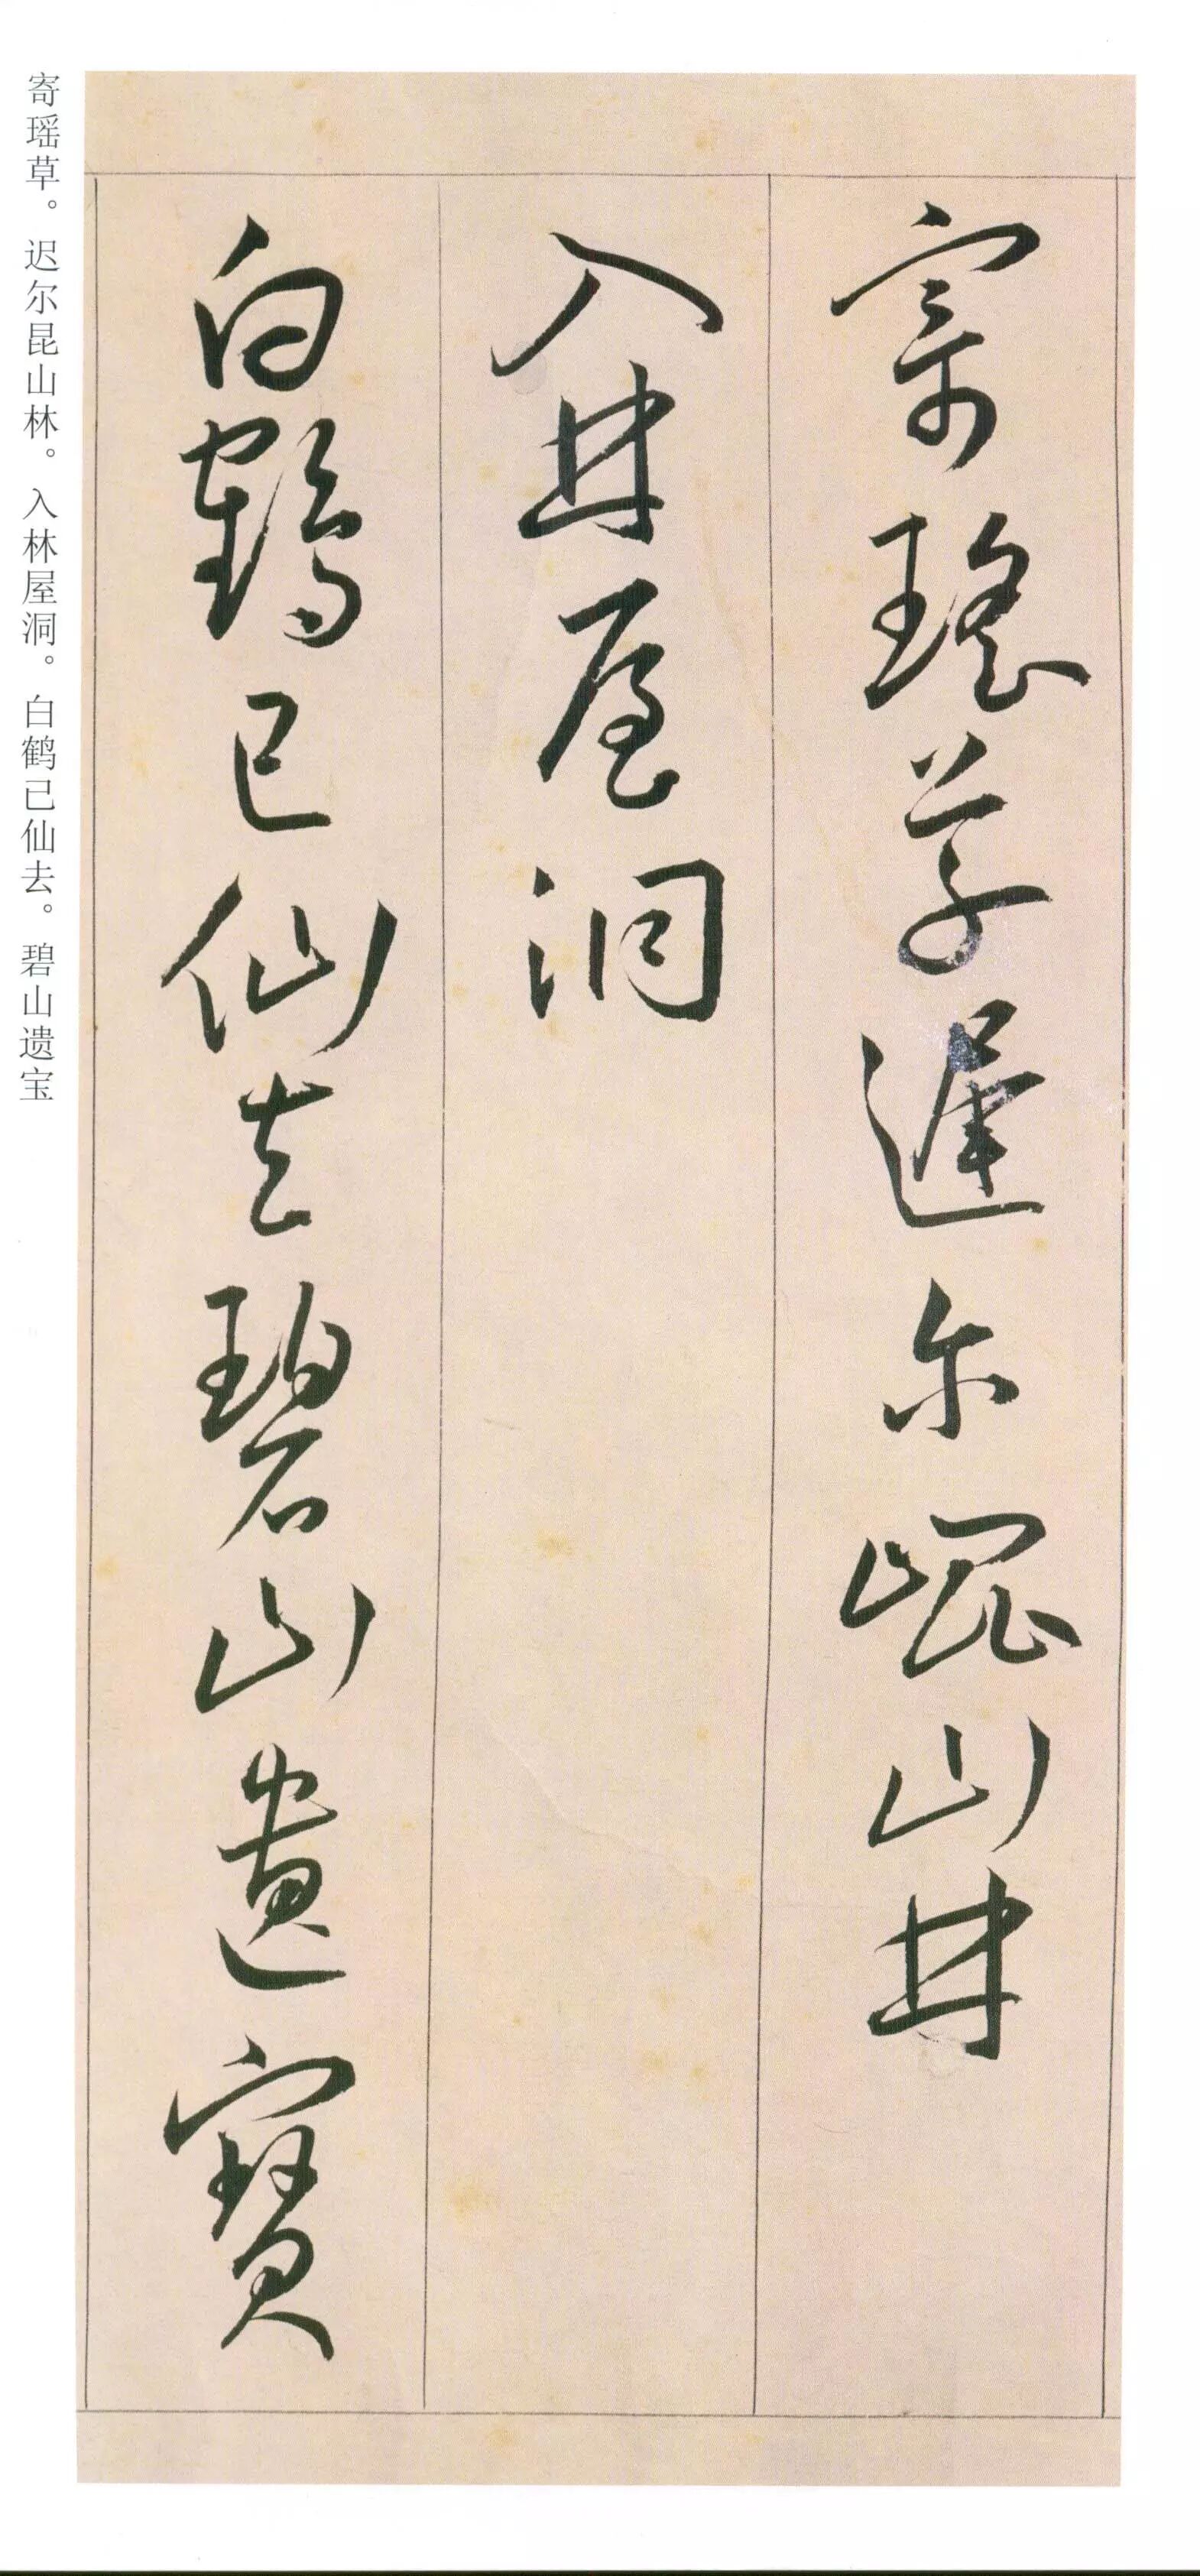 寄瑤草遲尔崐山林
入林屋洞
白鶴已仙去碧山遺寳
寄瑶草。迟尔昆山林。入林屋洞。白鹤已仙去。碧山遗宝